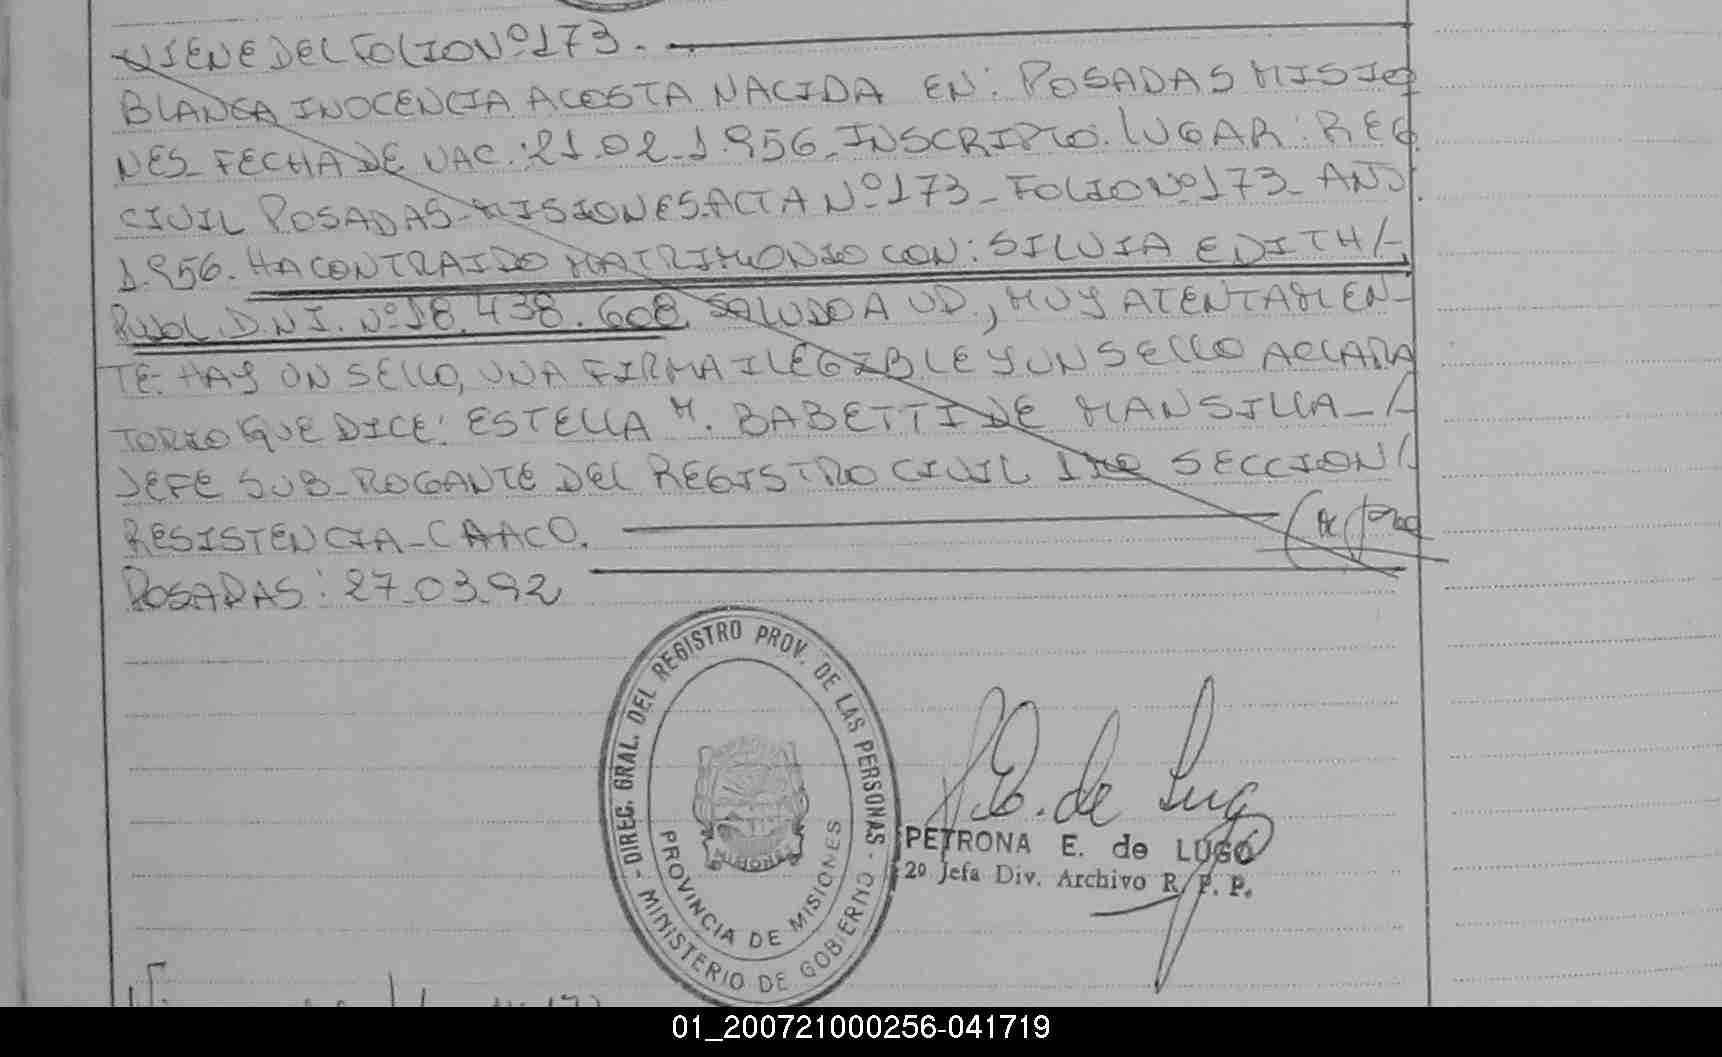 VIENE DEL FOLIO Nº 173.
BLANCA INOCENCIA ACOSTA NACIDA EN: POSADAS MISIO
NES. FECHA DE NAC.: 21.02.1.956. INSCRIPTO. LUGAR: REG.
CIVIL POSADAS-MISIONES. ACTA Nº 173 - FOLIO Nº 173 - AÑO.
1.956. HA CONTRAIDO MATRIMONIO CON: SILVIA EDITH/-
D.N.I. Nº 18.438.608. SALUDO A UD., MUY ATENTAMEN-
TE. HAY UN SELLO, UNA FIRMA ILEGIBLE Y UN SELLO ACLARA
TORIO QUE DICE: ESTELLA M. BABETTI DE MANSILLA-/-
JEFE SUB-ROGANTE DEL REGISTRO CIVIL 1RO SECCION/.
RESISTENCIA-CHACO.
POSADAS: 27.03.92
- DIREC. GRAL. DEL REGISTRO PROV. DE LAS PERSONAS -
MINISTERIO DE GOBIERNO
PROVINCIA DE MISIONES
MISIONES
P.E. de Lugo
PETRONA E. de LUGO
2º Jefa Div. Archivo R. P. P.
01_200721000256-041719